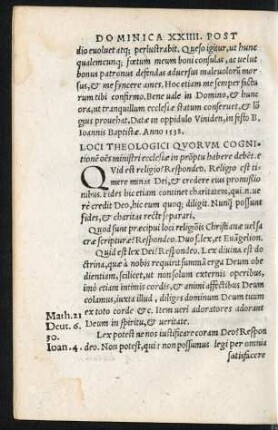 DOMINICA XXIIII. POST
dio euoluet atq; perlustrabit. Quęso igitur, ut hunc
qualemcunq; fœtum meum boni consulas, ac uelut
bonus patronus defendas aduersus maleuolorũ mor-
sus, & me syncere ames. Hoc etiam me semper factu-
rum tibi confirmo. Bene uale in Domino, & hunc
ora, ut tranquillum ecclesiæ statum conseruet, & lõ
gius prouehat. Datæ in oppidulo Viniden, in festo B.
Ioannis Baptistæ. Anno 1538.
LOCI THEOLOGICI QVORVM COGNI-
tionẽ oẽs ministri ecclesiæ in prõptu habere debẽt.
QVid est religio? Respondeo. Religio est ti-
mere minas Dei, & credere eius promissio-
nibus. Fides hic etiam continet charitatem, qui. n. ue
rè credit Deo, hic eum quoq; diligit. Nunq̃ possunt
fides, & charitas rectè separari.
Quod sunt præcipui loci religiõis Christianæ uel sa
cræ scripturæ? Respondeo. Duo s. lex, et Euãgelion.
Quid est lex Dei? Respõdeo. Lex diuina est do
ctrina, quæ à nobis requirit summã erga Deum obe
dientiam, scilicet, ut non solum externis operibus,
imò etiam intimis cordis, & animi affectibus Deum
colamus, iuxta illud, diliges dominum Deum tuum
Math. 21 ex toto corde &c. Item ueri adoratores adorant
Deut. 6. Deum in spiritu, & ueritate.
30. Lex potest ne nos iustificare coram Deo? Respon
Ioan. 4. deo. Non potest, quia non possumus legi per omnia
satisfacere